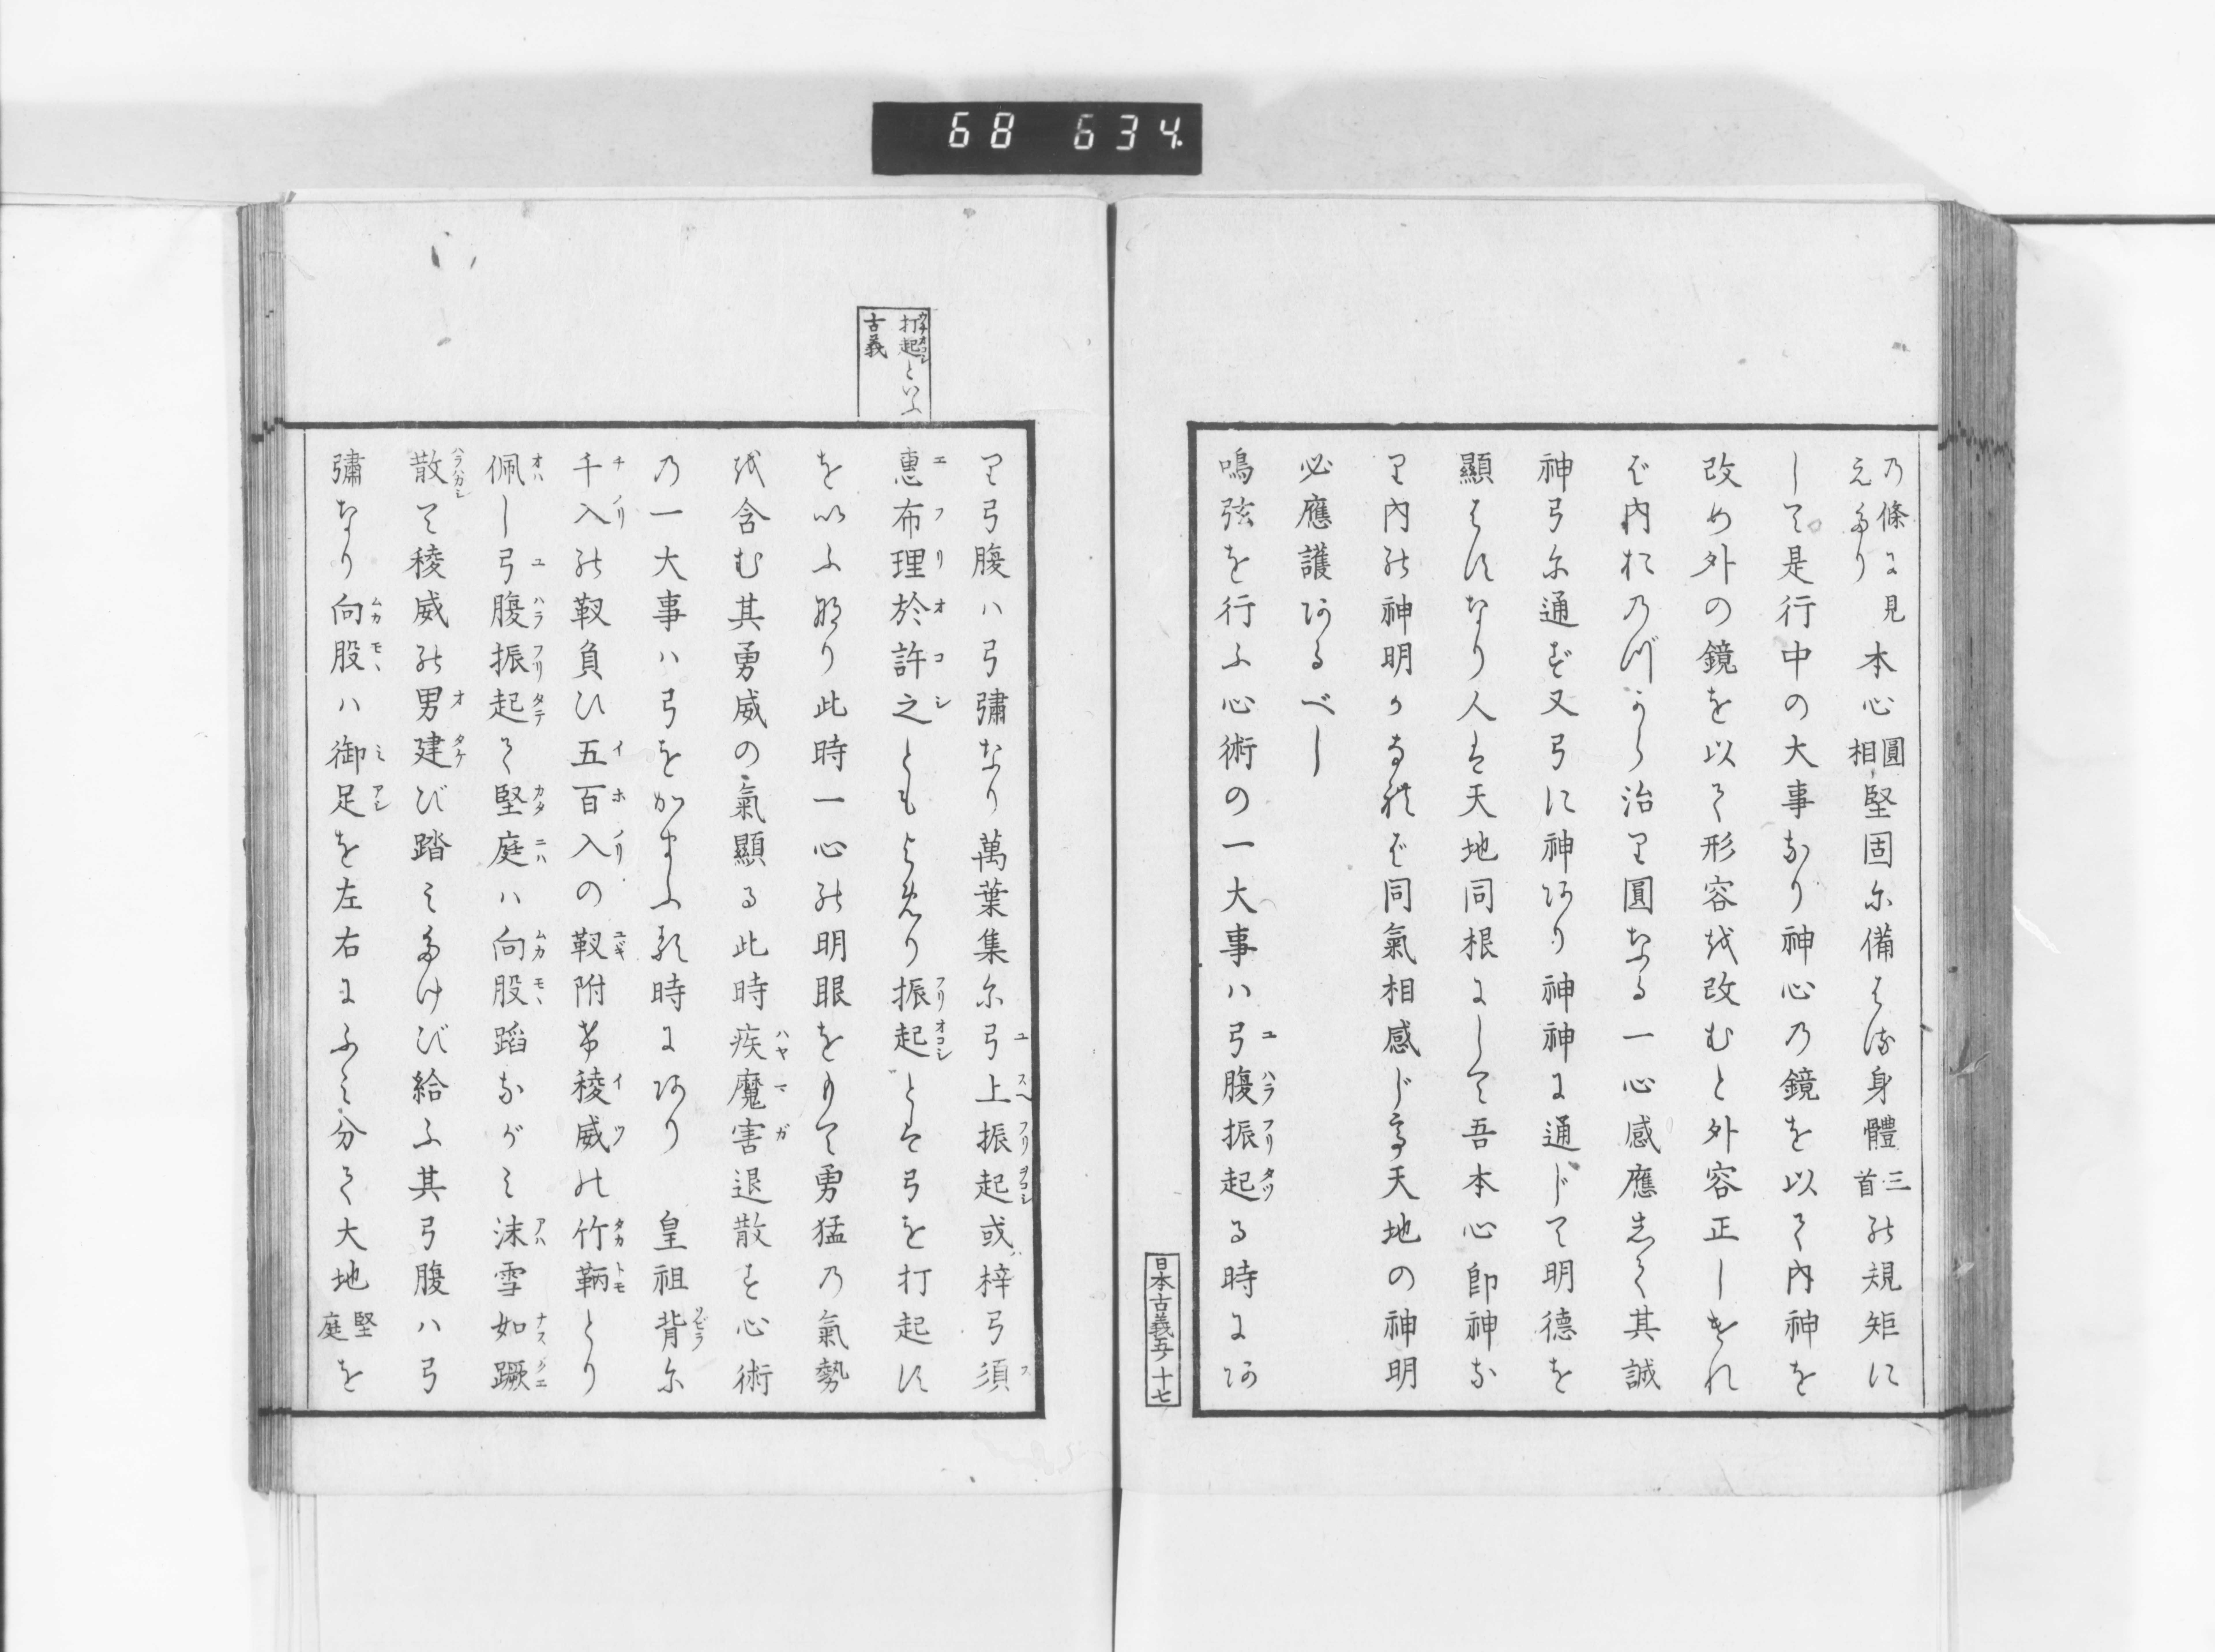 68 634
乃條に見えたり本心圓相堅固に備はる身體三首の規矩に
して是行中の大事なり神心乃鏡を以て內神を
改め外の鏡を以て形容を改むと外容正しけれ
ば內おのづから治り圓なる一心感應して其誠
神弓に通ず又弓に神あり神神に通じて明德を
顯はすなり人は天地同根にして吾本心卽神な
り內の神明かなれば同氣相感じて天地の神明
必應護あるべし
鳴弦を行ふ心術の一大事ハ弓腹振起る時にあ
日本古義五ノ十七
打起といふ
古義
り弓腹ハ弓彇なり萬葉集に弓上振起或ハ梓弓須
惠布理於許之ともよめり振起とは弓を打起す
を以ふなり此時一心の明眼をもて勇猛乃氣勢
を含む其勇威の氣顯る此時疾魔害退散す心術
乃一大事ハ弓をかまふる時にあり 皇祖背に
千入の靫負ひ五百入の靫附亦稜威の竹鞆とり
佩し弓腹振起て堅庭ハ向股蹈ながみ沫雪如蹶
散て稜威の男建び踏みたけび給ふ其弓腹ハ弓
彇なり向股ハ御足を左右にふみ分て大地堅庭を